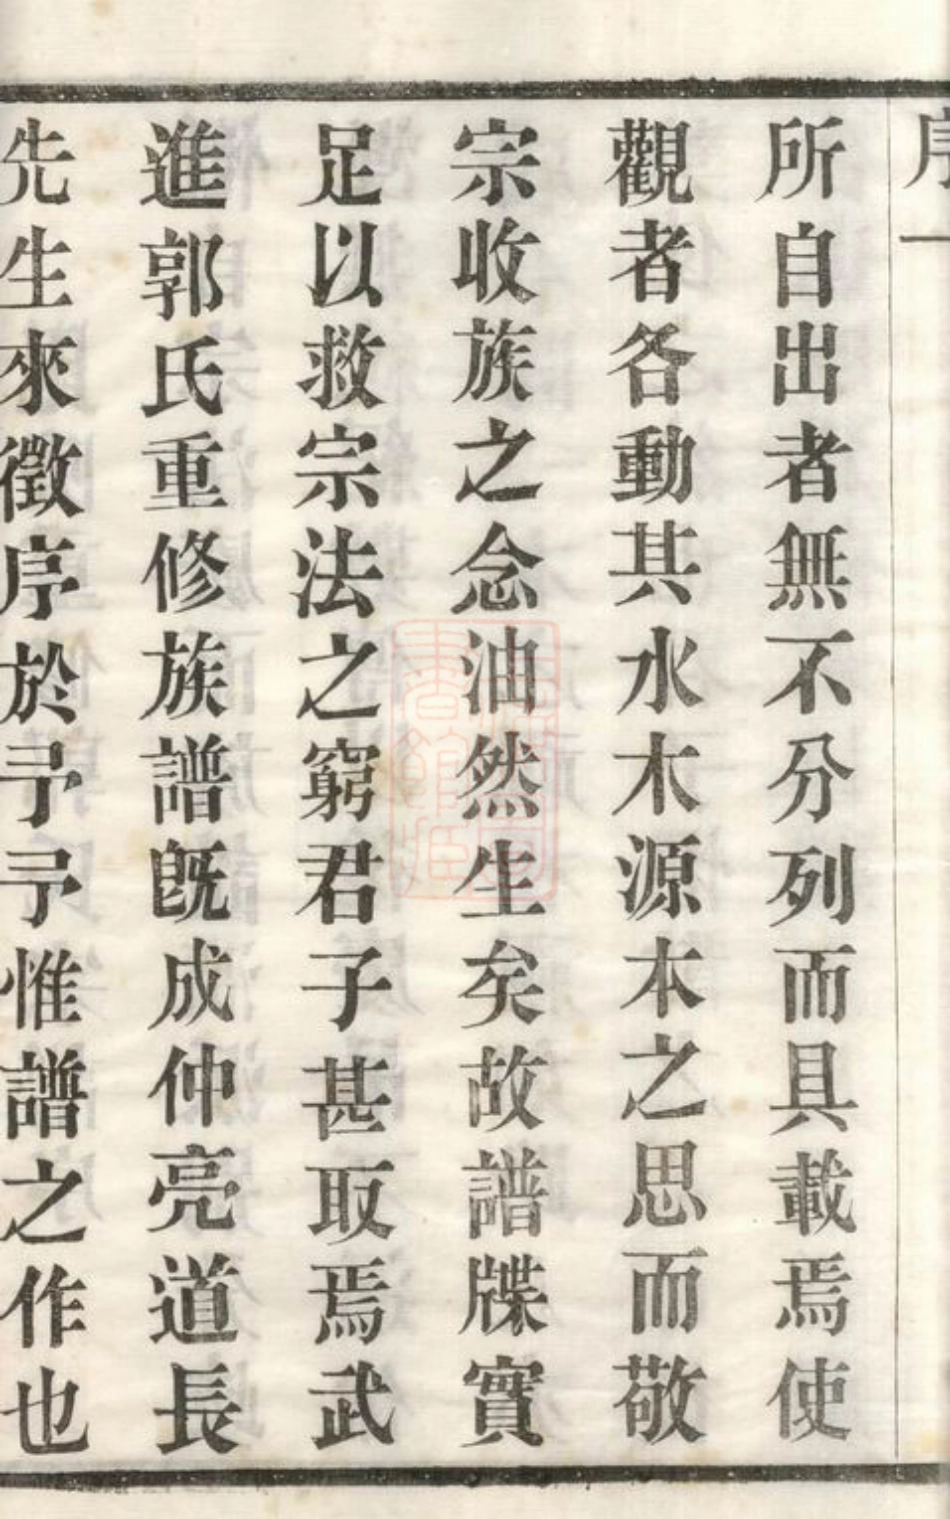 序一
所自出者無不分列而具載焉使
觀者各動其水木源本之思而敬
宗收族之念油然生矣故譜牒實
足以救宗法之窮君子甚取焉武
進郭氏重修族譜既成仲亮道長
先生來徵序於予予惟譜之作也